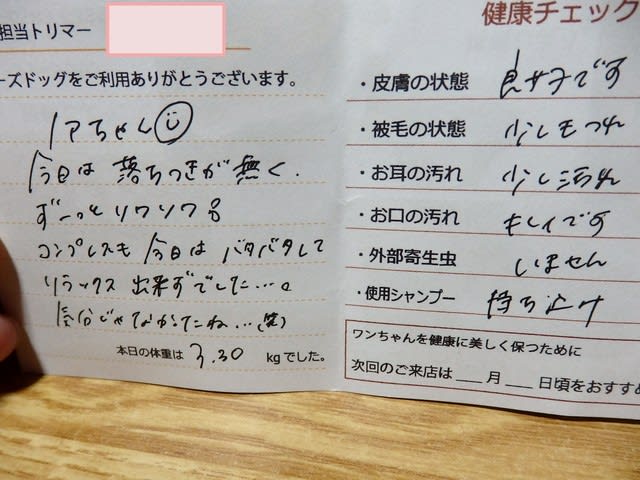 担当トリマー
ーズドッグをご利用ありがとうございます。
ノアちゃん
今日は落ちつきが無く、
ずーっとソワソワ
コンプレスも今日はバタバタして
リラックス出来ずでした…。
気分じゃなかったね…(笑)
本日の体重は 3.30 kgでした。
健康チェック
・皮膚の状態 良好です
・被毛の状態 少しもつれ
・お耳の汚れ 少し汚れ
・お口の汚れ キレイです
・外部寄生虫 いません
・使用シャンプー 持ち込み
ワンちゃんを健康に美しく保つために
次回のご来店は___月___日頃をおすすめ